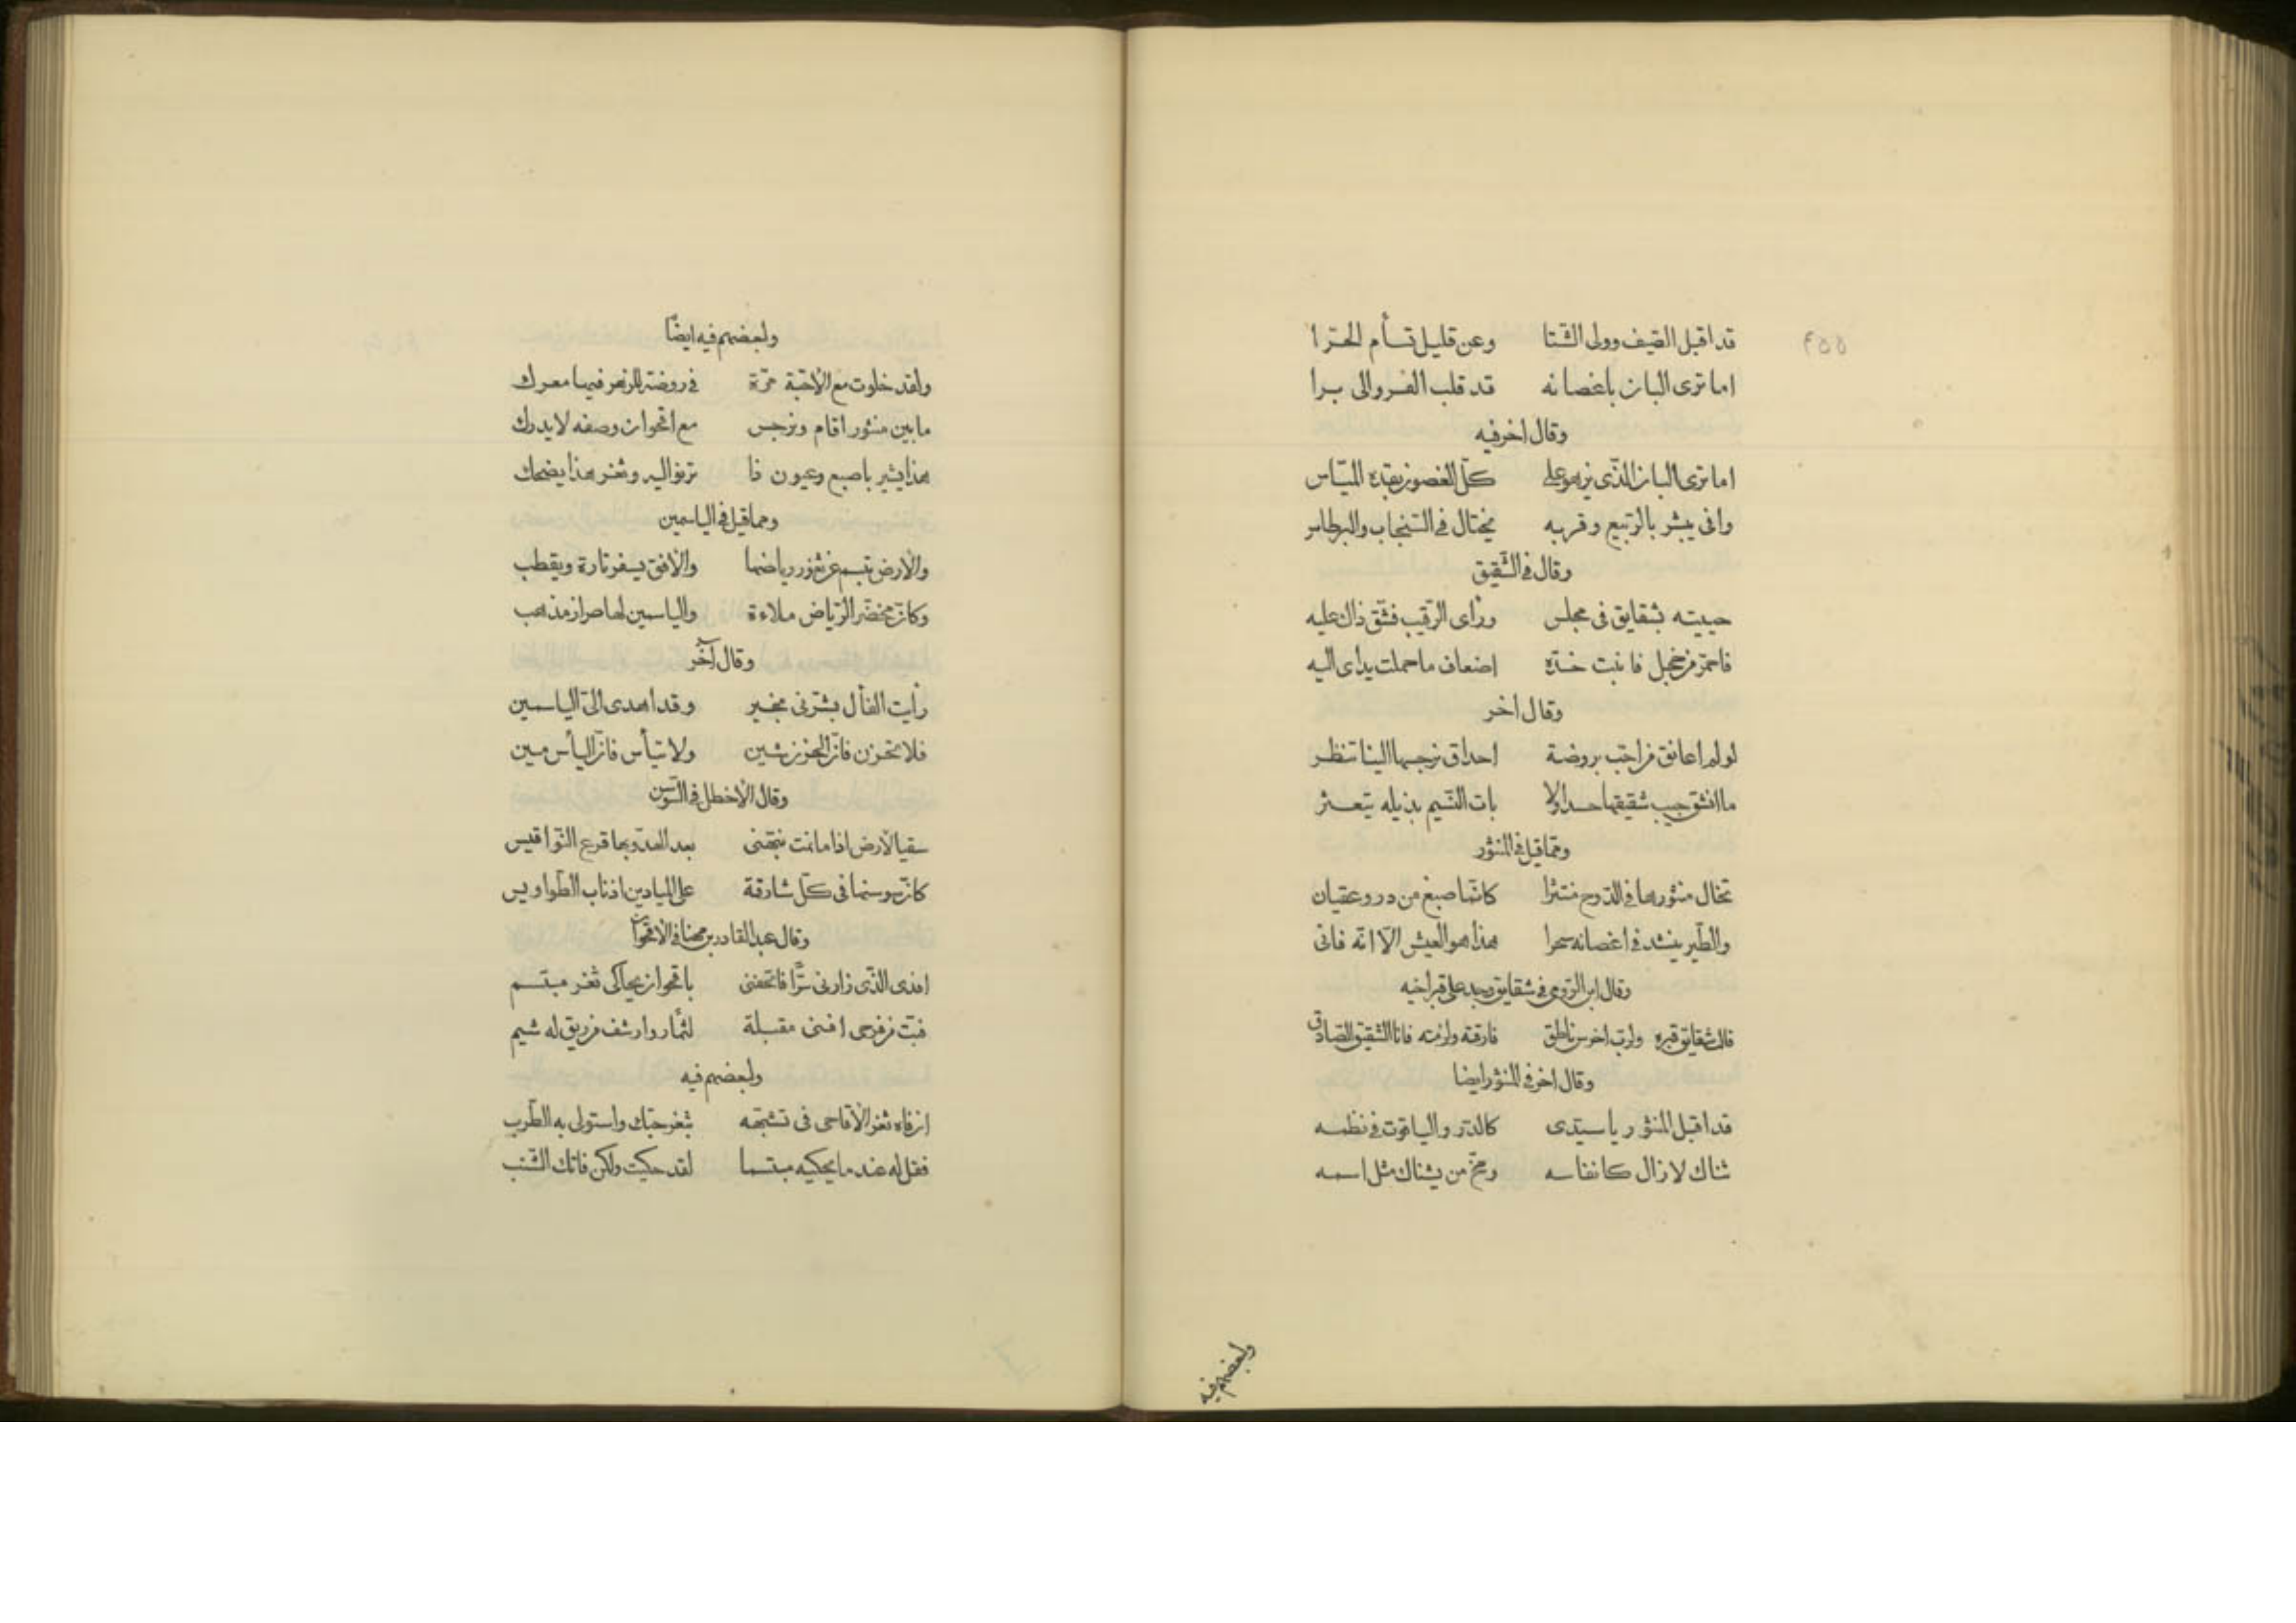 قد اقبل الصيف وولى الشتا وعن قليل تسأم الحرا
اما ترى البان باغصانه قد قلب الفرو الى برا
وقال اخر فيه
اما ترى البان الذى يزهو على كل الغصون بقده المياس
وافى يبشر بالربيع وقربه يختال فى السنجاب والبرطاس
وقال فى الشقيق
حييته بشقايق فى مجلس ورأى الرقيب فشق ذاك عليه
فاحمر من خجل فانبت خده اضعاف ما حملت يداى اليه
وقال اخر
لو لم اعانق من احب بروضة احداق نرجسها الينا تنظر
ما انشق جيب شقيقها حسدا ولا بات النسيم بذيله يتعثر
ومما قيل فى المنثور
تخال منثورها فى الدوح منتثرا كانما صبغ من در وعقيان
والطير ينشد فى اغصانه سحرا هذا هو العيش الا انه فانى
وقال ابن الرومى فى شقايق وجد على قبر اخيه
قالت شقايق قبره ولرب اخرس ناطق فارقته ولزمته فانا الشقيق الصادق
وقال اخر فى المنثور ايضا
قد اقبل المنثور يا سيدى كالدر والياقوت فى نظمه
ثناك لا زال كانفاسه ومخ من يشناك مثل اسمه
ولبعضهم فيه
ولبعضهم فيه ايضًا
ولقد خلوت مع الأحبة مرة فى روضة للزهر فيها معرك
ما بين منثور اقام ونرجس مع اقحوان وصفه لا يدرك
هذا يشير باصبع وعيون ذا ترنو اليه وثغر هذا يضحك
ومما قيل فى الياسمين
والأرض تبسم عن ثغور رياضها والأفق يسفر تارة ويقطب
وكان مخضر الرياض ملاءة والياسمين لها طراز مذهب
وقال آخر
رأيت الفأل بشرنى بخير وقد اهدى الى الياسمين
فلا تحزن فان الحزن شين ولا تيأس فان اليأس مين
وقال الأخطل فى السوسن
سقيا لأرض اذا ما نمت نبهنى بعد الهدو بها قرع النواقيس
كان سوسنها فى كل شارقة على الميادين اذناب الطواويس
وقال عبد القادر بن مهنا فى الأقحوان
افدى الذى زارنى سرًا فاتحفنى باقحوان يحاكى ثغر مبتسم
فبت من فرحى افنى مقبلة لثما وارشف من ريق له شيم
ولبعضهم فيه
ان فاه ثغر الأقاحى فى تشبهه بثغر حبك واستولى به الطرب
فقل له عند ما يحكيه مبتسما لقد حكيت ولكن فاتك الشنب